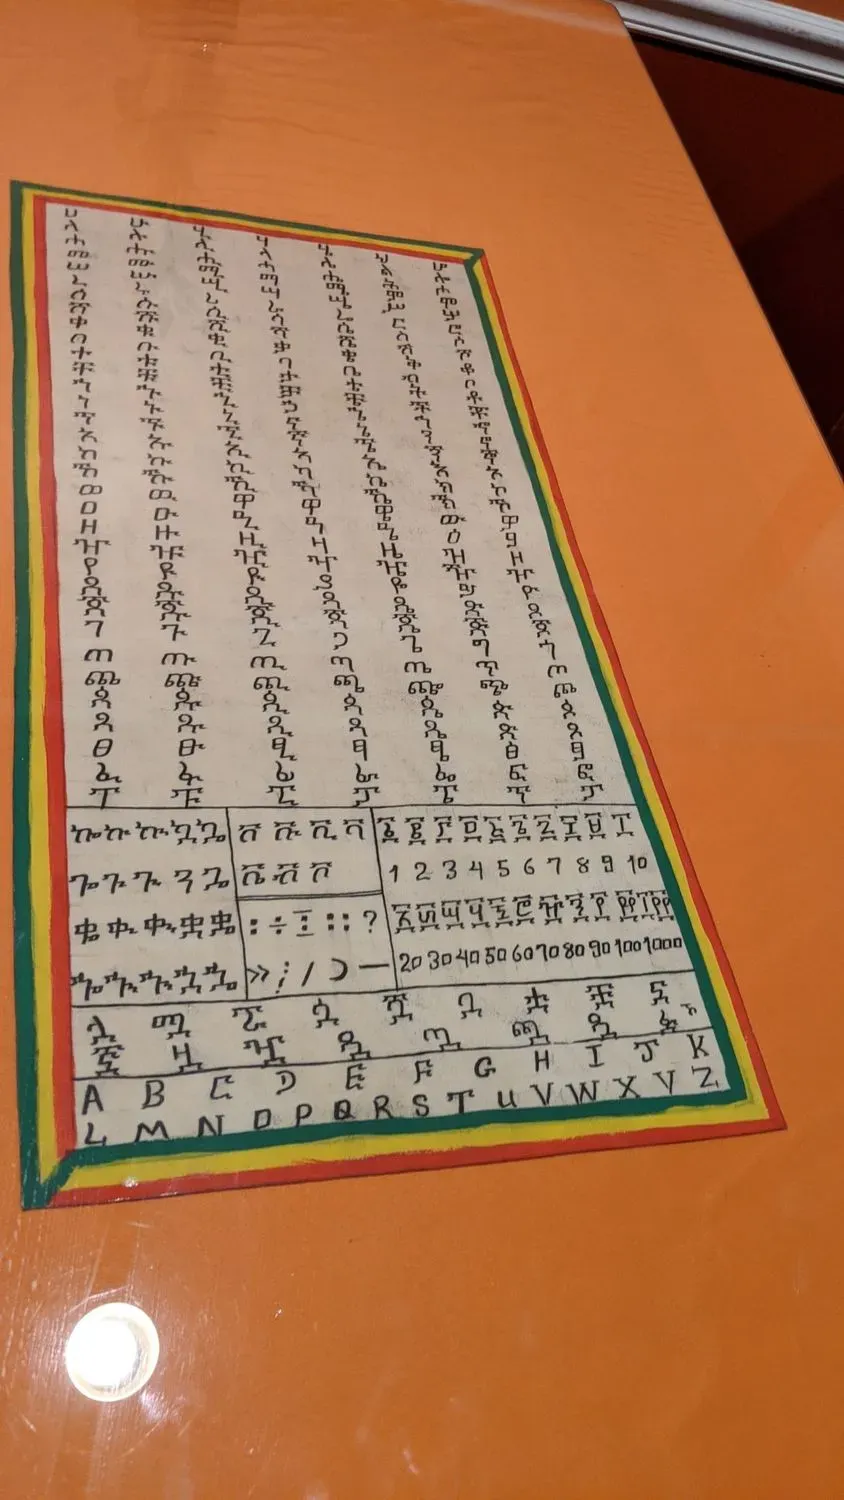 ሀ ሁ ሂ ሃ ሄ ህ ሆ
ለ ሉ ሊ ላ ሌ ል ሎ
ሐ ሑ ሒ ሓ ሔ ሕ ሖ
መ ሙ ሚ ማ ሜ ም ሞ
ሠ ሡ ሢ ሣ ሤ ሥ ሦ
ረ ሩ ሪ ራ ሬ ር ሮ
ሰ ሱ ሲ ሳ ሴ ስ ሶ
ሸ ሹ ሺ ሻ ሼ ሽ ሾ
ቀ ቁ ቂ ቃ ቄ ቅ ቆ
በ ቡ ቢ ባ ቤ ብ ቦ
ተ ቱ ቲ ታ ቴ ት ቶ
ቸ ቹ ቺ ቻ ቼ ች ቾ
ኀ ኁ ኂ ኃ ኄ ኅ ኆ
ነ ኑ ኒ ና ኔ ን ኖ
ኘ ኙ ኚ ኛ ኜ ኝ ኞ
አ ኡ ኢ ኣ ኤ እ ኦ
ከ ኩ ኪ ካ ኬ ክ ኮ
ኸ ኹ ኺ ኻ ኼ ኽ ኾ
ወ ዉ ዊ ዋ ዌ ው ዎ
ዐ ዑ ዒ ዓ ዔ ዕ ዖ
ዘ ዙ ዚ ዛ ዜ ዝ ዞ
ዠ ዡ ዢ ዣ ዤ ዥ ዦ
የ ዩ ዪ ያ ዬ ይ ዮ
ደ ዱ ዲ ዳ ዴ ድ ዶ
ጀ ጁ ጂ ጃ ጄ ጅ ጆ
ገ ጉ ጊ ጋ ጌ ግ ጎ
ጠ ጡ ጢ ጣ ጤ ጥ ጦ
ጨ ጩ ጪ ጫ ጬ ጭ ጮ
ጰ ጱ ጲ ጳ ጴ ጵ ጶ
ጸ ጹ ጺ ጻ ጼ ጽ ጾ
ፀ ፁ ፂ ፃ ፄ ፅ ፆ
ፈ ፉ ፊ ፋ ፌ ፍ ፎ
ፐ ፑ ፒ ፓ ፔ ፕ ፖ
ኰ ኵ ኲ ኳ ኴ
ጐ ጕ ጒ ጓ ጔ
ቈ ቍ ቊ ቋ ቌ
ኈ ኍ ኊ ኋ ኌ
ቨ ቩ ቪ ቫ
ቬ ቭ ቮ
: ÷ ፤ :: ?
» / —
፩ ፪ ፫ ፬ ፭ ፮ ፯ ፰ ፱ ፲
1 2 3 4 5 6 7 8 9 10
፳ ፴ ፵ ፶ ፷ ፸ ፹ ፺ ፻ ፲፻
20 30 40 50 60 70 80 90 100 1000
ሏ ሟ ሯ ሷ ሿ ቧ ቷ ቿ ኗ
ኟ ዟ ዧ ዷ ጧ ጯ ጿ ፏ
A B C D E F G H I J K
L M N O P Q R S T U V W X Y Z